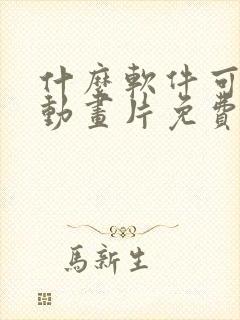 什麼軟件可
動畫片免費
馬新生